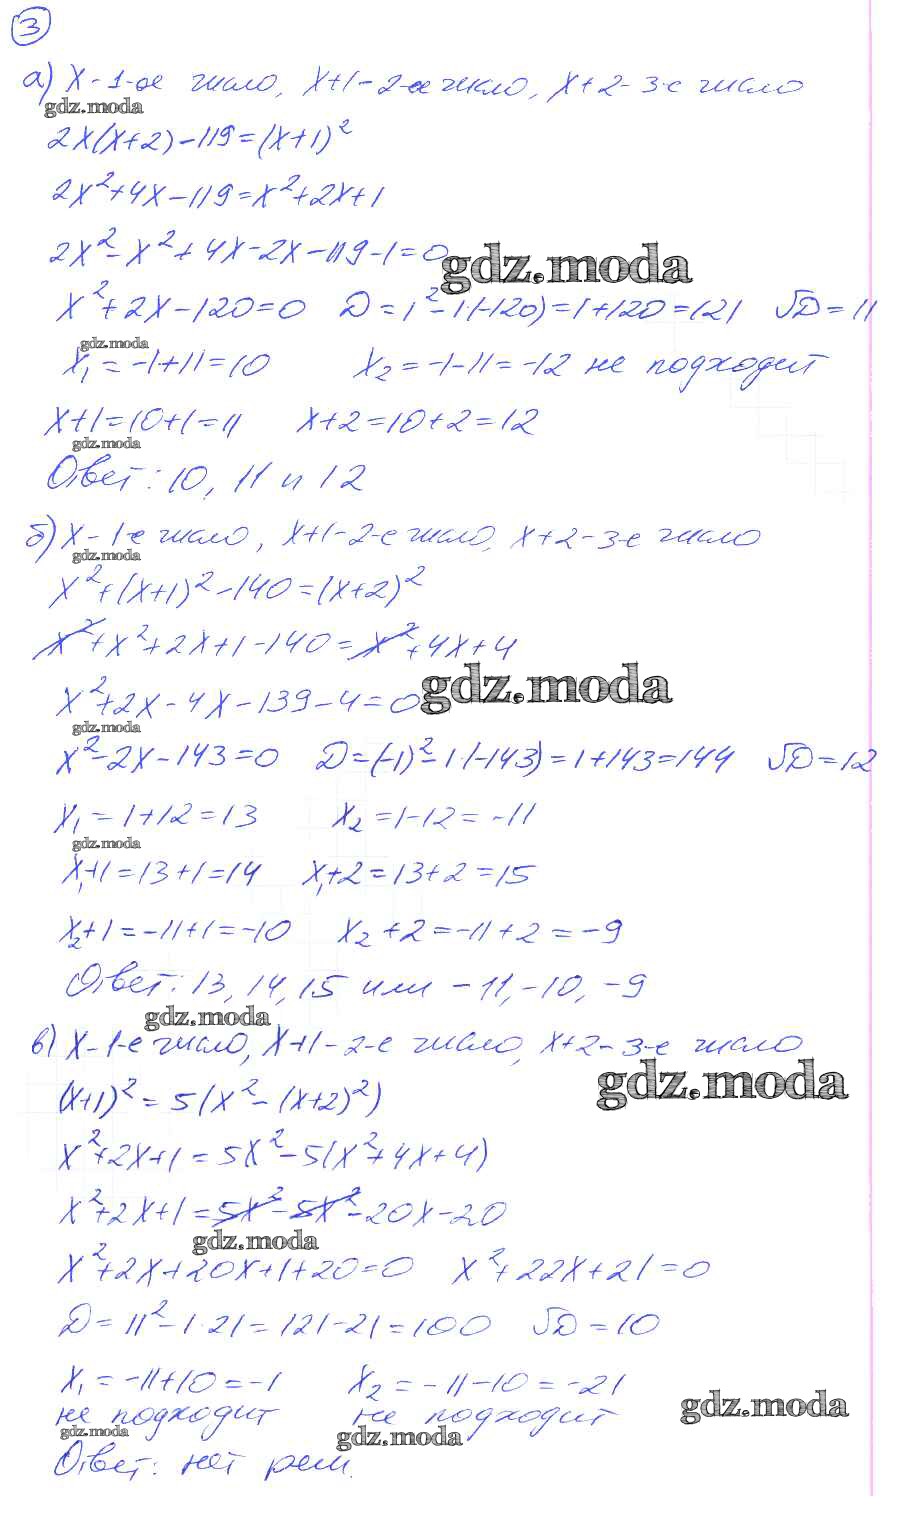 3
а) x - 1-ое число, x+1 - 2-ое число, x+2 - 3-е число
gdz.moda
2x(x+2)-119=(x+1)²
2x²+4x-119=x²+2x+1
2x²-x²+4x-2x-119-1=0
gdz.moda
x²+2x-120=0 D=1²-1·(-120)=1+120=121 √D=11
gdz.moda
x₁=-1+11=10 x₂=-1-11=-12 не подходит
x+1=10+1=11 x+2=10+2=12
gdz.moda
Ответ: 10, 11 и 12
б) x - 1-е число, x+1 - 2-е число, x+2 - 3-е число
gdz.moda
x²+(x+1)²-140=(x+2)²
x²+x²+2x+1-140=x²+4x+4
x²+2x-4x-139-4=0
gdz.moda
gdz.moda
x²-2x-143=0 D=(-1)²-1·(-143)=1+143=144 √D=12
x₁=1+12=13 x₂=1-12=-11
gdz.moda
x₁+1=13+1=14 x₁+2=13+2=15
x₂+1=-11+1=-10 x₂+2=-11+2=-9
Ответ: 13, 14, 15 или -11, -10, -9
gdz.moda
в) x - 1-е число, x+1 - 2-е число, x+2 - 3-е число
gdz.moda
(x+1)²=5(x²-(x+2)²)
x²+2x+1=5x²-5(x²+4x+4)
x²+2x+1=5x²-5x²-20x-20
gdz.moda
x²+2x+20x+1+20=0 x²+22x+21=0
D=11²-1·21=121-21=100 √D=10
x₁=-11+10=-1 x₂=-11-10=-21
gdz.moda
не подходит не подходит
gdz.moda gdz.moda
Ответ: нет реш.